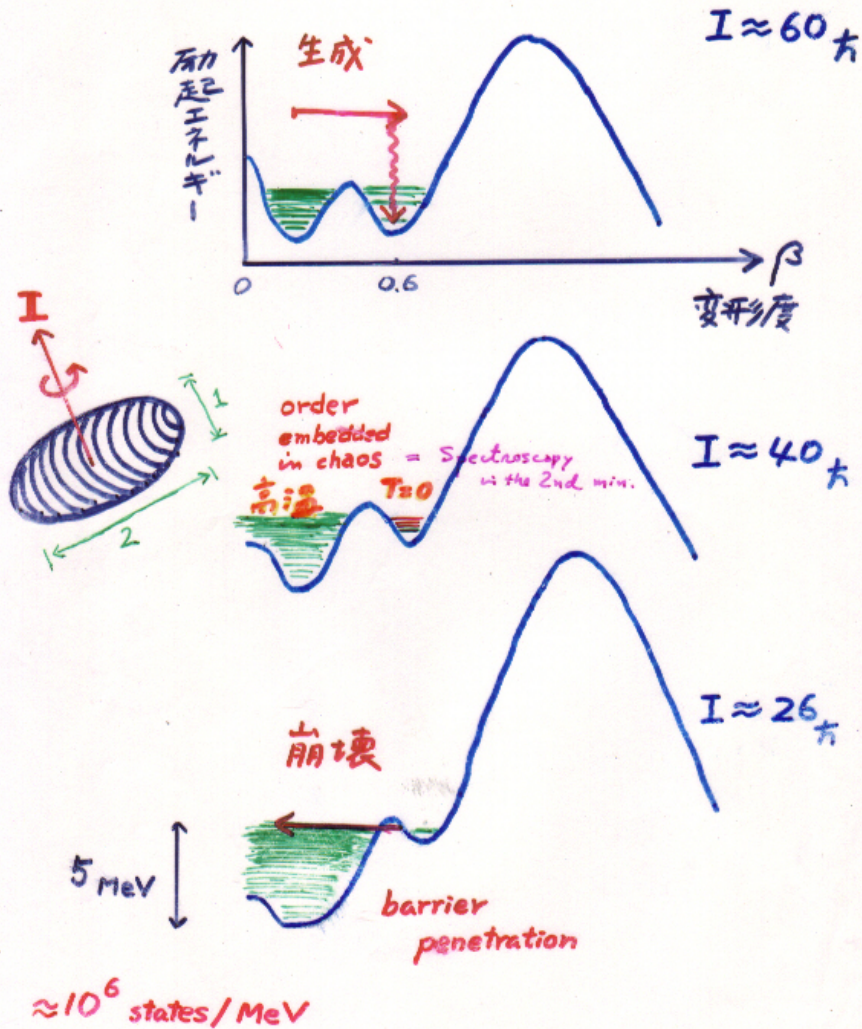 I ≈ 60 ℏ
励起エネルギー
生成
0
0.6
β
変形度
I
1
2
order
embedded
in chaos = Spectroscopy
in the 2nd min.
高温
T=0
I ≈ 40 ℏ
I ≈ 26 ℏ
崩壊
5 MeV
barrier
penetration
≈10⁶ states/MeV